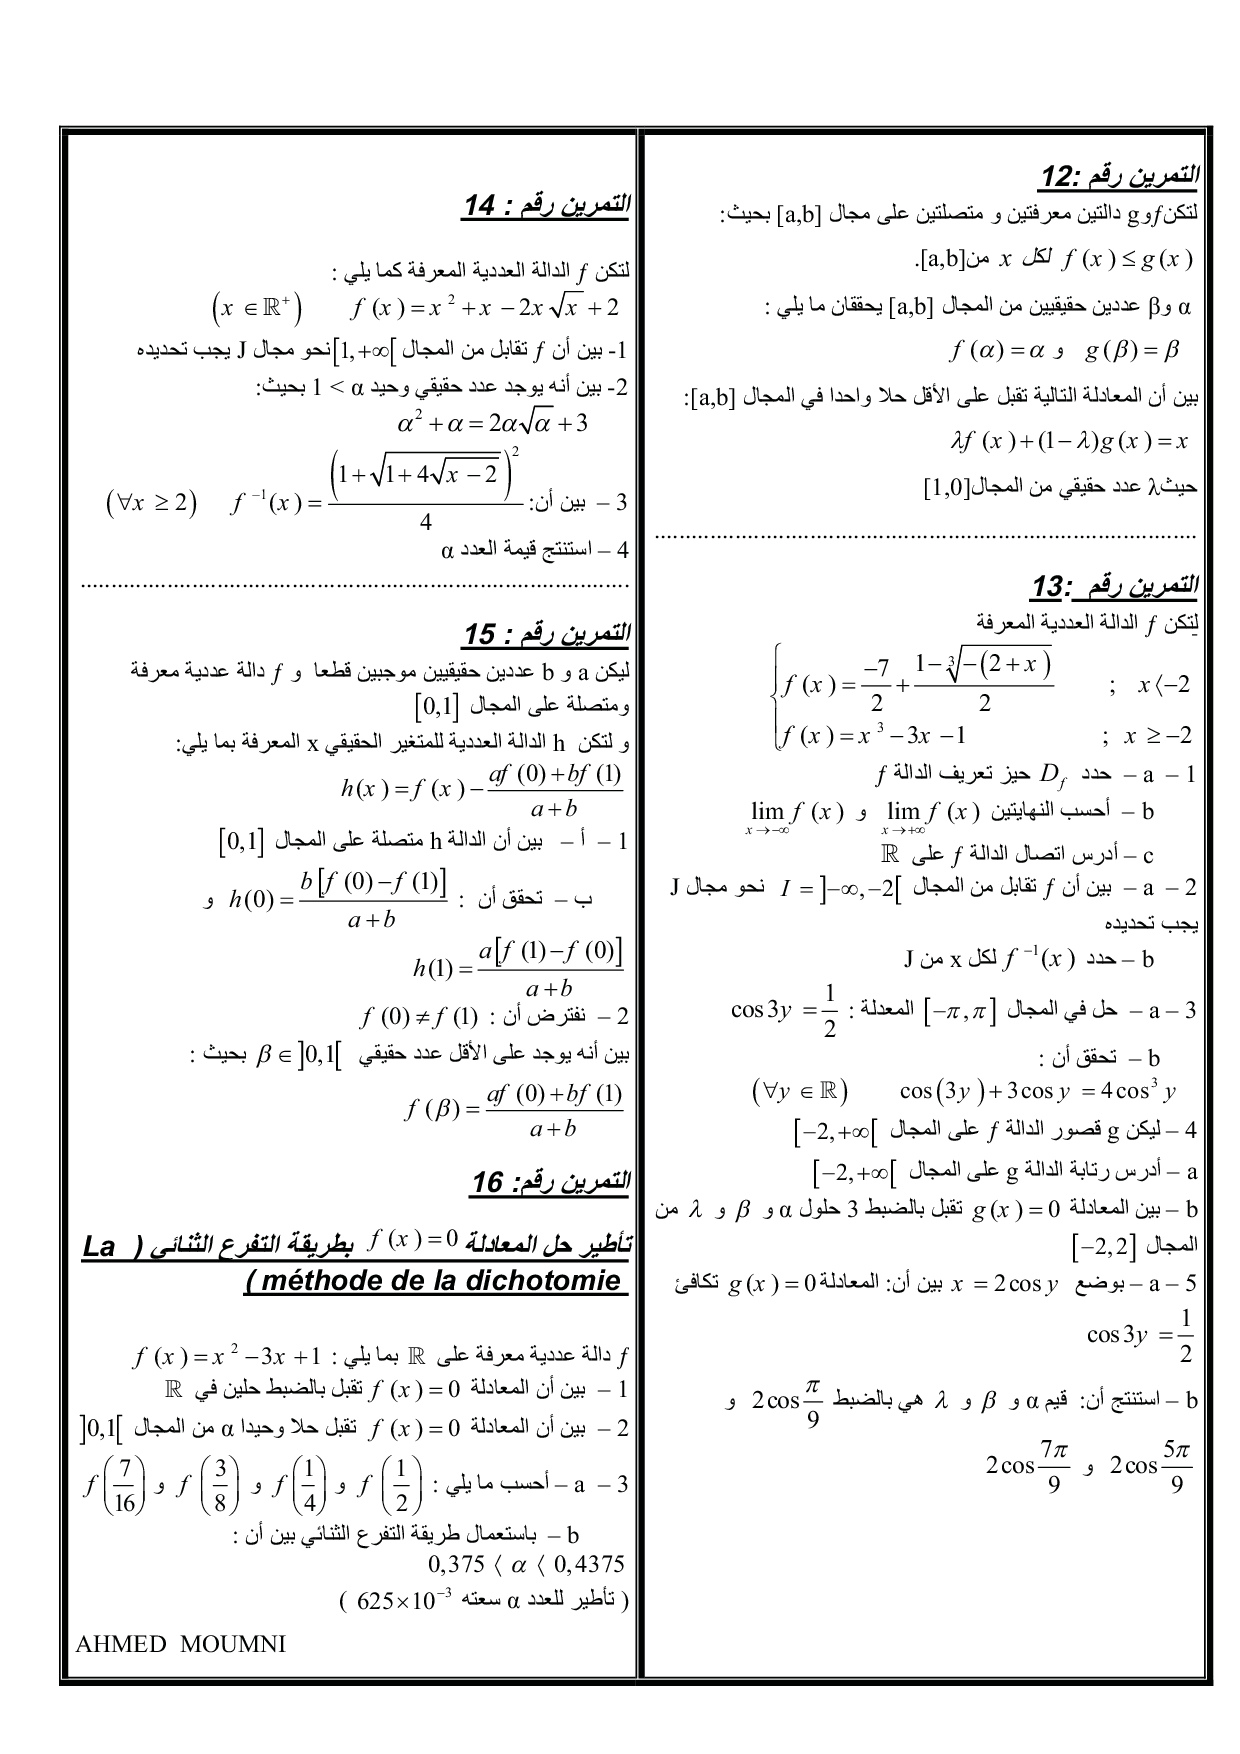 التمرين رقم :12
لتكن f و g دالتين معرفتين و متصلتين على مجال [a,b] بحيث:
f(x) ≤ g(x) لكل x من [a,b].
α و β عددين حقيقيين من المجال [a,b] يحققان ما يلي :
g(β) = β و f(α) = α
بين أن المعادلة التالية تقبل على الأقل حلا واحدا في المجال [a,b]:
λf(x) + (1 − λ)g(x) = x
حيث λ عدد حقيقي من المجال [1,0]
التمرين رقم :13
لتكن f الدالة العددية المعرفة
{ f(x) = −7/2 + (1 − ∛(−(2 + x)))/2 ; x ⟨ −2
f(x) = x³ − 3x − 1 ; x ≥ −2
1 – a – حدد D_f حيز تعريف الدالة f
b – أحسب النهايتين lim_{x→+∞} f(x) و lim_{x→−∞} f(x)
c – أدرس اتصال الدالة f على ℝ
2 – a – بين أن f تقابل من المجال I = ]−∞, −2[ نحو مجال J
يجب تحديده
b – حدد f⁻¹(x) لكل x من J
3 – a – حل في المجال [−π, π] المعدلة : cos3y = 1/2
b – تحقق أن :
cos(3y) + 3cos y = 4cos³ y (∀y ∈ ℝ)
4 – ليكن g قصور الدالة f على المجال [−2, +∞[
a – أدرس رتابة الدالة g على المجال [−2, +∞[
b – بين المعادلة g(x) = 0 تقبل بالضبط 3 حلول α و β و λ من
المجال [−2, 2]
5 – a – بوضع x = 2cos y بين أن: المعادلة g(x) = 0 تكافئ
cos3y = 1/2
b – استنتج أن: قيم α و β و λ هي بالضبط 2cos π/9 و
2cos 5π/9 و 2cos 7π/9
التمرين رقم : 14
لتكن f الدالة العددية المعرفة كما يلي :
f(x) = x² + x − 2x√x + 2 (x ∈ ℝ⁺)
1- بين أن f تقابل من المجال [1, +∞[ نحو مجال J يجب تحديده
2- بين أنه يوجد عدد حقيقي وحيد α > 1 بحيث:
α² + α = 2α√α + 3
3 – بين أن: f⁻¹(x) = (1 + √(1 + 4√(x − 2)))²/4 (∀x ≥ 2)
4 – استنتج قيمة العدد α
التمرين رقم : 15
ليكن a و b عددين حقيقيين موجبين قطعا و f دالة عددية معرفة
ومتصلة على المجال [0,1]
و لتكن h الدالة العددية للمتغير الحقيقي x المعرفة بما يلي:
h(x) = f(x) − (af(0) + bf(1))/(a + b)
1 – أ – بين أن الدالة h متصلة على المجال [0,1]
ب – تحقق أن : h(0) = b[f(0) − f(1)]/(a + b) و
h(1) = a[f(1) − f(0)]/(a + b)
2 – نفترض أن : f(0) ≠ f(1)
بين أنه يوجد على الأقل عدد حقيقي β ∈ ]0,1[ بحيث :
f(β) = (af(0) + bf(1))/(a + b)
التمرين رقم: 16
تأطير حل المعادلة f(x) = 0 بطريقة التفرع الثنائي ( La
méthode de la dichotomie )
f دالة عددية معرفة على ℝ بما يلي : f(x) = x² − 3x + 1
1 – بين أن المعادلة f(x) = 0 تقبل بالضبط حلين في ℝ
2 – بين أن المعادلة f(x) = 0 تقبل حلا وحيدا α من المجال ]0,1[
3 – a – أحسب ما يلي : f(1/2) و f(1/4) و f(3/8) و f(7/16)
b – باستعمال طريقة التفرع الثنائي بين أن :
0,375 ⟨ α ⟨ 0,4375
( تأطير للعدد α سعته 625×10⁻³ )
AHMED MOUMNI